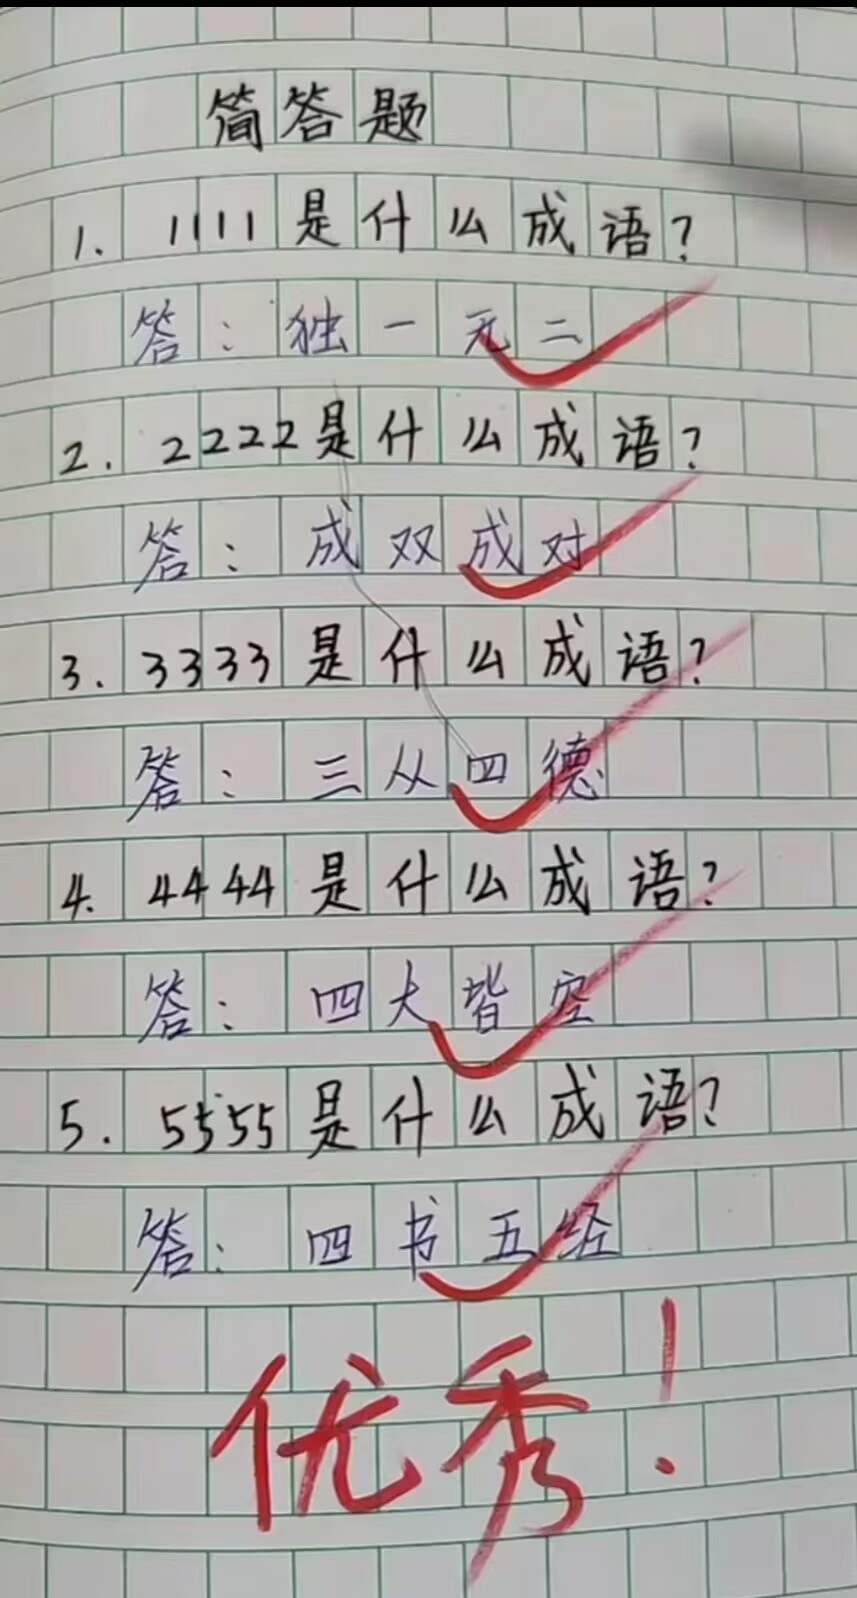 简答题
1. 1111是什么成语?
答: 独一无二
2. 2222是什么成语?
答: 成双成对
3. 3333是什么成语?
答: 三从四德
4. 4444是什么成语?
答: 四大皆空
5. 5555是什么成语?
答: 四书五经
优秀!